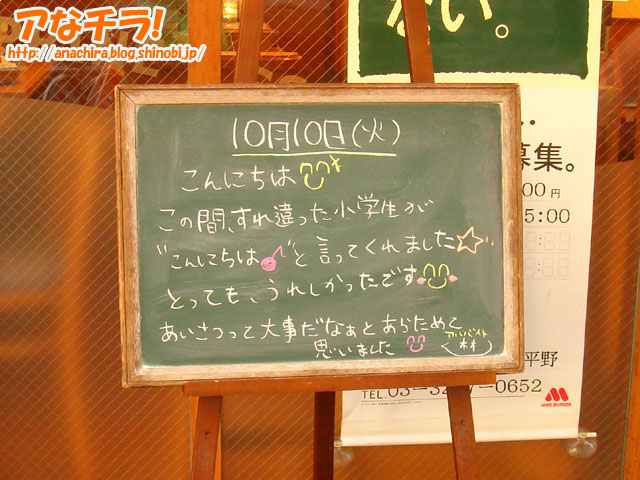 アなチラ!
http://anachira.blog.shinobi.jp/
ない。
募集。
00円
5:00
10月10日(火)
こんにちは
この間、すれ違った小学生が
"こんにちは"と言ってくれました
とっても、うれしかったです
あいさつって大事だなぁとあらためて
思いました
アルバイト
林
平野
TEL.03-32 7-0652
MOS BURGER